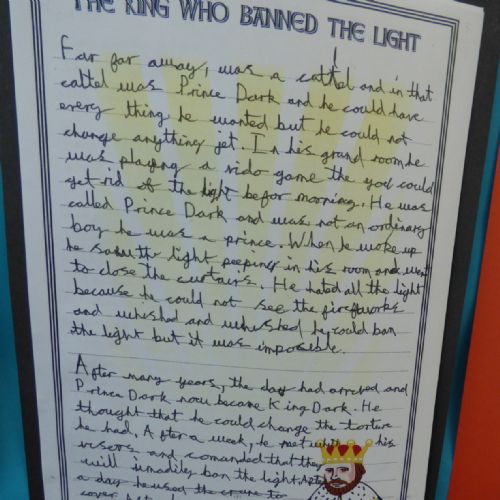 THE KING WHO BANNED THE LIGHT
Far far away, was a cattel and in that
cattel was Prince Dark and he could have
every thing he wanted but he could not
change anything jet. In his grand room he
was playing a vido game the you could
get rid of the light befor morning. He was
called Prince Dark and was not an ordinary
boy he was a prince. When he woke up
he saw the light peeping in his room and went
to close the curtains. He hated all the light
because he could not see the fireworks
and whished and whished he could ban
the light but it was imposible.
After many years, the day had arrived and
Prince Dark now became King Dark. He
thought that he could change the torture
he had. After a week, he met with his
visors and comanded that they
will ban the light.
a day he used the to
cover